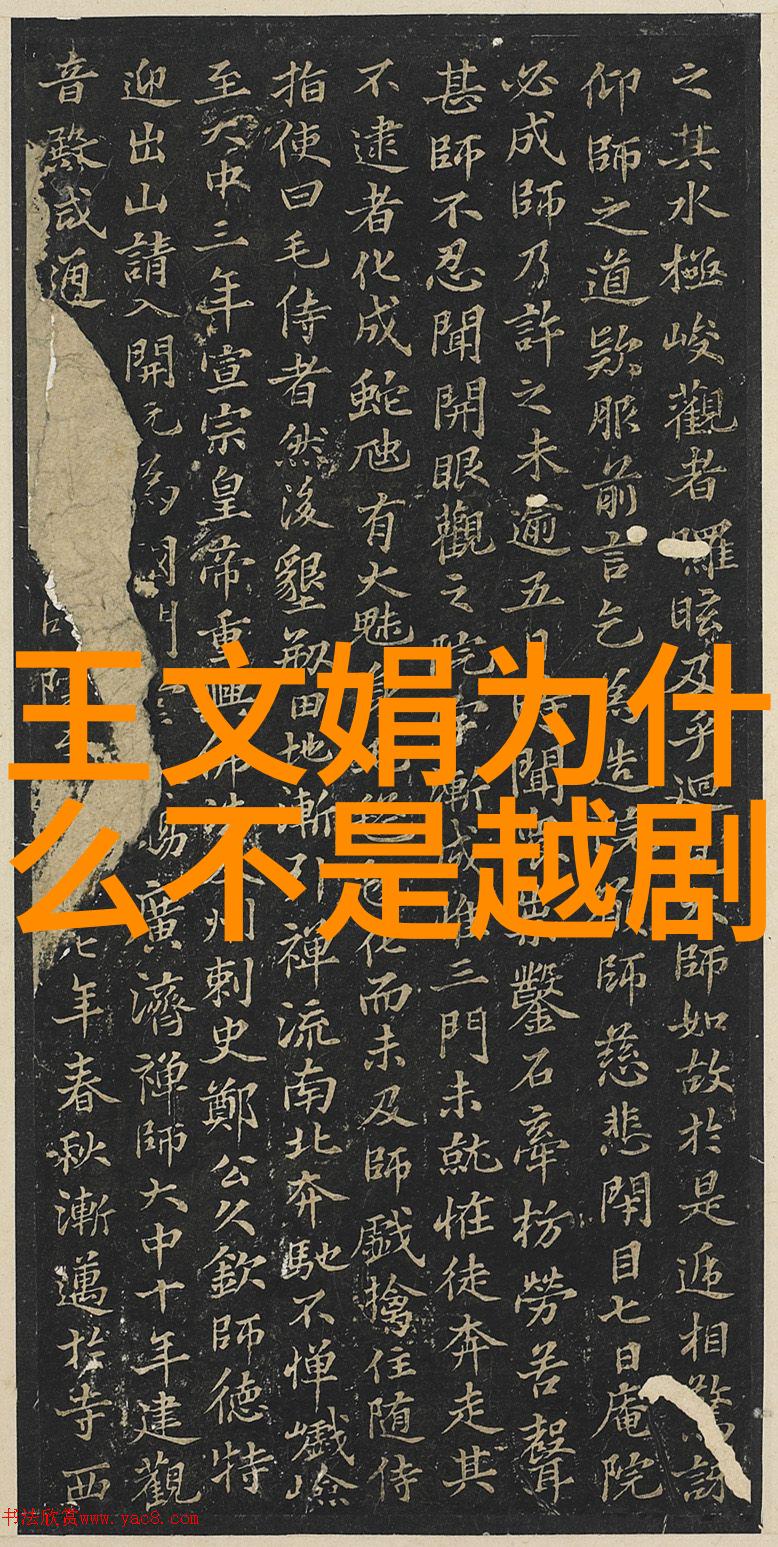 之其水極峻觀者
眩及乎迴
師如故於是遞相驚訝
仰師之道
服前言乞
師慈悲閉目七日庵院
必成師乃許之未逾五
聞
鑿石牽枋勞苦聲
甚師不忍聞開眼觀之院
漸成惟三門未就恠徒奔走其
不逮者化成蛇虺有大魅
化而未及師戲擒住随侍
指使曰毛侍者然後墾
地漸引禅流南北奔馳不憚巇嶮
至大中三年宣宗皇帝重興佛
州刺史鄭公久欽師德特
迎出山請入開元為
廣濟禅師大中十年建觀
音殿咸通
七年春秋漸邁於寺西
王文娟为什
么不是越剧
书法欣赏www.yac8.com